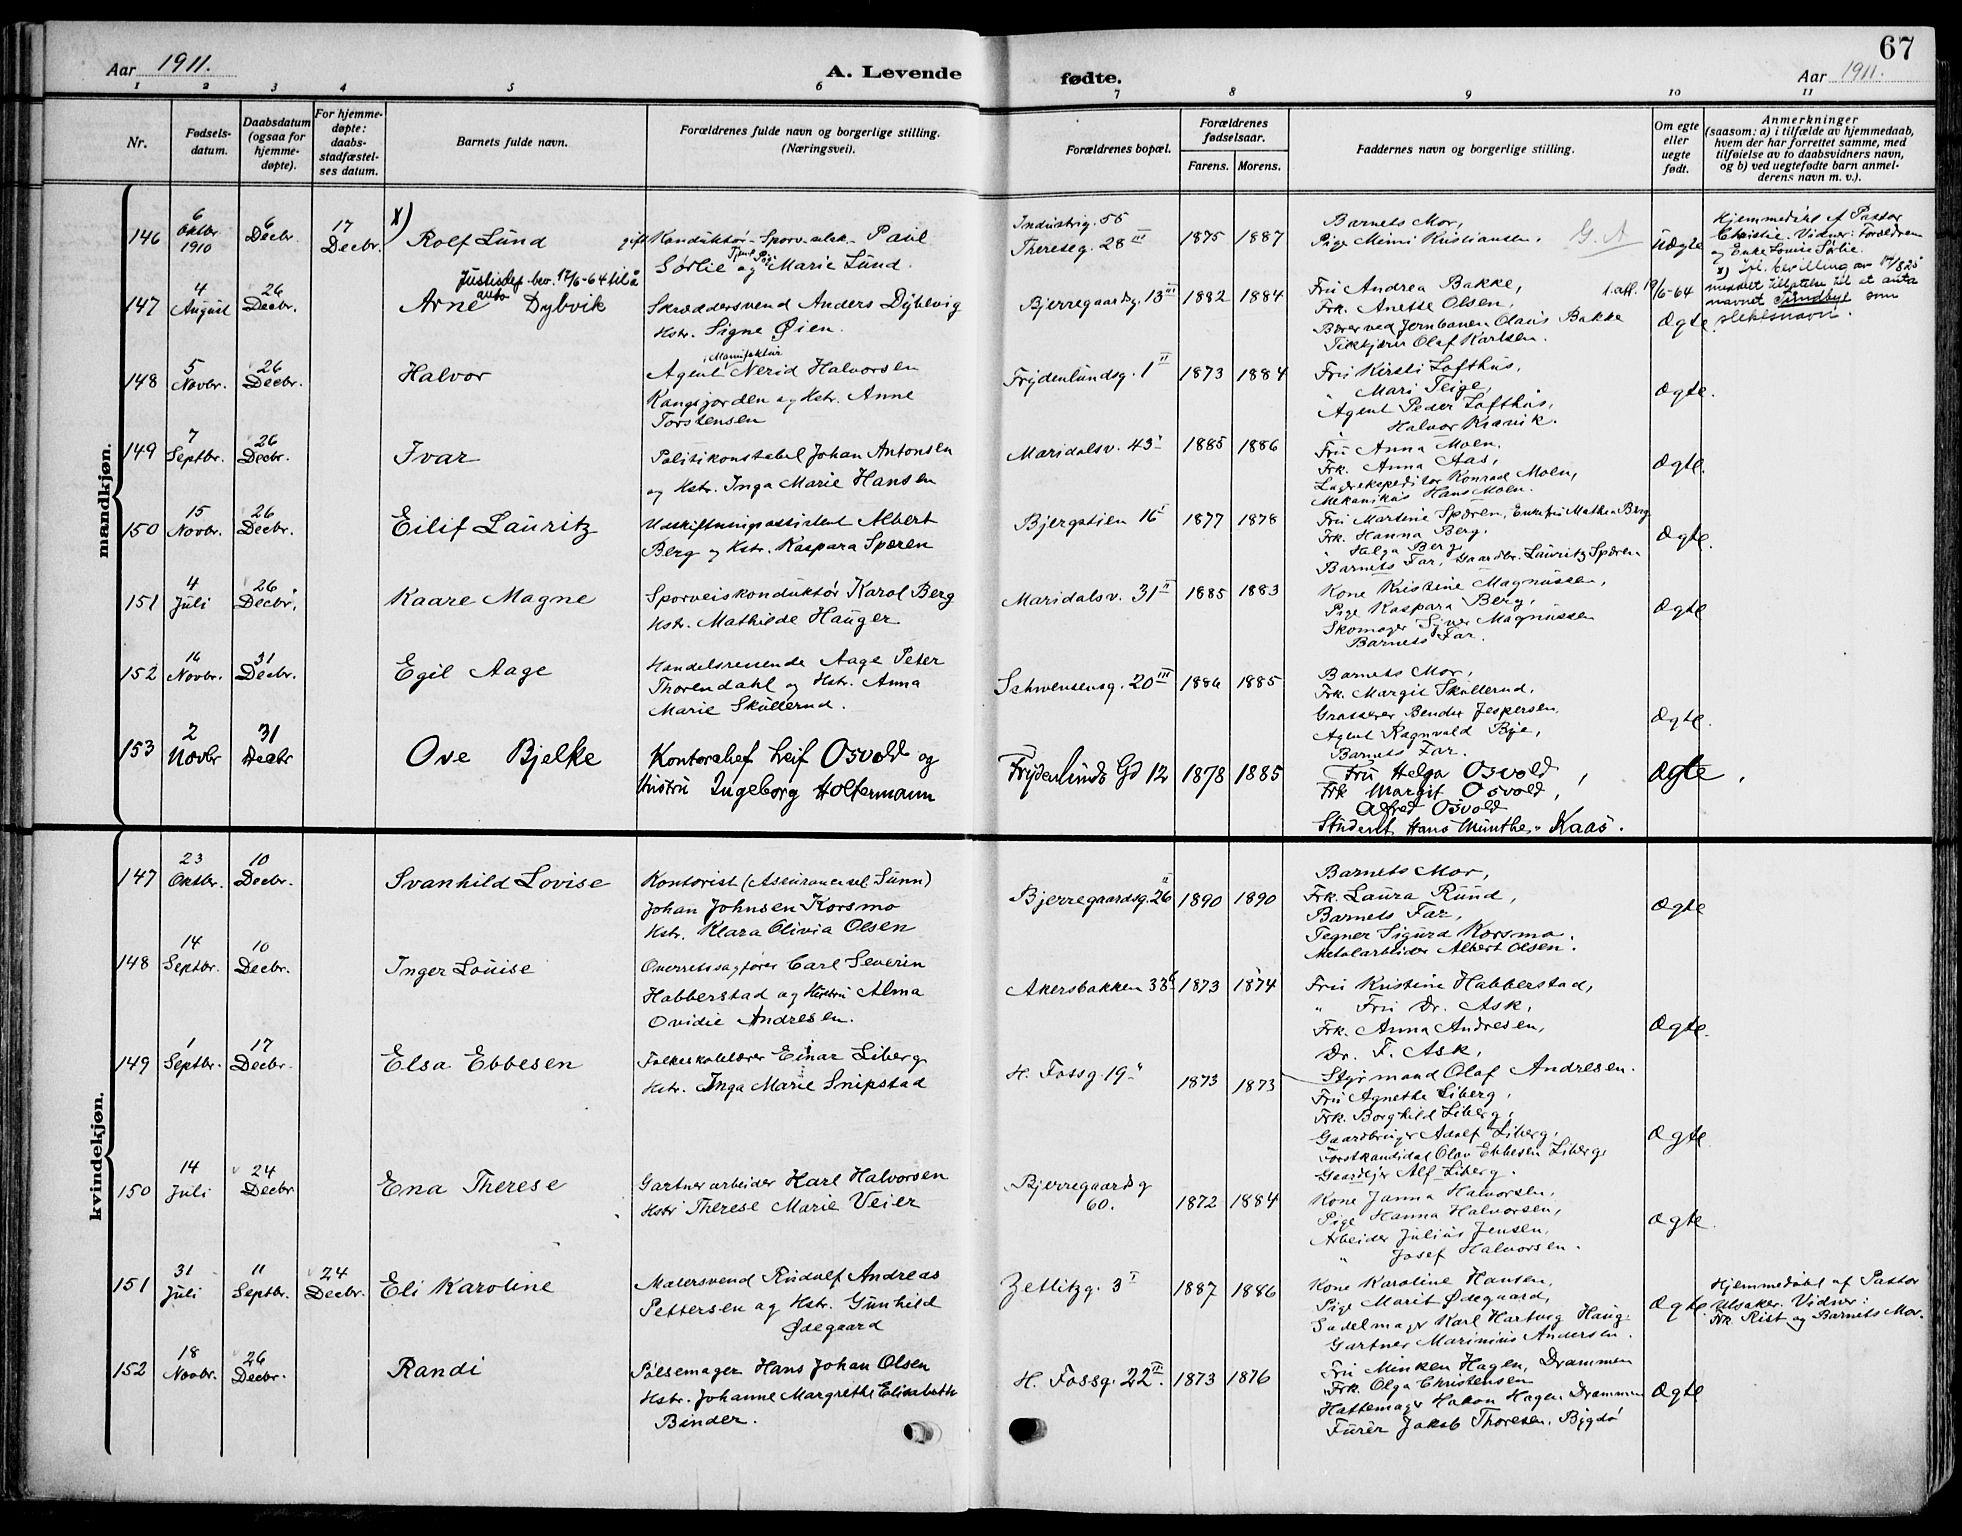 67
Aar 1911.
A. Levende
fødte.
Aar 1911.
1 2 3 4 5 6 7 8 9 10 11
Nr.
Fødsels-
datum.
Daabsdatum
(ogsaa for
hjemme-
døpte).
For hjemme-
døpte:
daabs-
stadfæstel-
ses datum.
Barnets fulde navn.
Forældrenes fulde navn og borgerlige stilling.
(Næringsvei).
Forældrenes bopæl.
Forældrenes
fødselsaar.
Farens. Morens.
Faddernes navn og borgerlige stilling.
Om egte
eller
uegte
født.
Anmerkninger
(saasom: a) i tilfælde av hjemmedaab,
hvem der har forrettet samme, med
tilføielse av to daabsvidners navn,
og b) ved uegtefødte barn anmel-
derens navn m. v.).
mandkjøn.
146
6
Oktbr.
1910
6
Decbr.
17
Decbr.
x)
Rolf Lund
gift Konduktør Paul
Sørlie og Marie Lund.
Industrig. 55
Thereseg. 28 III
1875 1887
Barnets Mor,
Pige Mimi Kristiansen,
G. A
Uægte
Hjemmedøbt af Pastor
Christie. Vidner: Forældrene
og Enke Louise Sørlie.
navnet Sundbye som
slektsnavn.
147
4
August
26
Decbr.
Justisdep. bev. 12/6-64 til å
anta
Arne Dybvik
Skræddersvend Anders Dybvig
Hstr. Signe Øien.
Bjerregaardsg. 13 III
1882 1884
Fru Andrea Bakke,
Frk. Anette Olsen,
Bærer ved Jernbanen Olaus Bakke
Olaf Karlsen.
1.aff. 19/6-64
Ægte
148
5
Novbr.
26
Decbr.
Halvor
Manufaktur
Agent Nerid Halvorsen
Kongsjorden og Hstr. Anne
Torstensen
Frydenlundsg. 1 II
1873 1884
Fru Kirsti Lofthus,
" Mari Teige,
Agent Peder Lofthus,
Halvor Kravik.
Ægte.
149
7
Septbr.
26
Decbr.
Ivar
Politikonstabel Johan Antonsen
og Hstr. Inga Marie Hansen
Maridalsv. 43 I
1885 1886
Fru Anna Moen.
Frk. Anna Aas,
Lagerekspeditør Konrad Moen,
Mekanikus Hans Moen.
Ægte.
150
15
Novbr.
26
Decbr.
Eilif Lauritz
Udskiftningsassistent Albert
Berg og Hstr. Kaspara Spæren
Bjergstien 16 I
1877 1878
Fru Martine Spæren, Enkefru Mathea Berg
Frk. Hanna Berg,
" Helga Berg
Barnets Far, Gaardbr. Lauritz Spæren
Ægte.
151
4
Juli
26
Decbr.
Kaare Magne
Sporveiskonduktør Karol Berg
Hstr. Mathilde Hauger
Maridalsv. 31 II
1885 1883
Kone Kristine Magnussen,
Pige Kaspara Berg,
Skomager Syver Magnussen
Barnets Far.
Ægte
152
16
Novbr.
31
Decbr.
Egil Aage
Handelsreisende Aage Peter
Thorendahl og Hstr. Anna
Marie Skullerud.
Schwensensg. 20 III
1886 1885
Barnets Mor,
Frk. Margit Skullerud,
Grosserer Bendix Jespersen,
Agent Ragnvald Bye,
Barnets Far.
Ægte.
153
2
Novbr
31
Decbr
Ove Bjelke
Kontorchef Leif Osvold og
Hustru Ingeborg Holtermann
Frydenlunds Gd 12
1878 1885
Fru Helga Osvold,
Frk Margit Osvold,
Alfred Osvold
Student Hans Munthe-Kaas.
Ægte,
kvindekjøn.
147
23
Oktbr.
10
Decbr.
Svanhild Lovise
Kontorist (Assurancesel. Sunn)
Johan Johnsen Korsmo
Hstr. Klara Olivia Olsen
Bjerregaardsg. 26 II
1890 1890
Barnets Mor,
Frk. Laura Rund,
Barnets Far,
Tegner Sigurd Korsmo.
Metalarbeider Albert Olsen.
Ægte
148
14
Septbr.
10
Decbr.
Inger Louise
Overretssagfører Carl Severin
Habberstad og Hustru Alma
Ovidie Andresen.
Akersbakken 33
1873 1874
Fru Kristine Habberstad,
" Fru Dr. Ask,
Frk. Anna Andresen,
Dr. F. Ask,
Styrmand Olaf Andresen.
Ægte.
149
1
Septbr.
17
Decbr.
Elsa Ebbesen
Folkeskolelærer Einar Liberg
Hstr. Inga Marie Snipstad
H. Fossg. 19
1873 1873
Fru Agnethe Liberg,
Frk. Borghild Liberg,
Gaardbruger Adolf Liberg,
Forstkandidat Olav Ebbesen Liberg,
Gaardejr Alf Liberg.
Ægte.
150
14
Juli
24
Decbr.
Ena Therese
Gartnerarbeider Karl Halvorsen
Hstr Therese Marie Veier
Bjerregaardsg
60.
1872 1884
Kone Janna Halvorsen,
Pige Hanna Halvorsen,
Arbeider Julius Jensen,
" Josef Halvorsen.
Ægte.
151
31
Juli
11
Septbr.
24
Decbr.
Eli Karoline
Malersvend Rudolf Andreas
Pettersen og Hstr. Gunhild
Ødegaard
Zetlitzg. 3 I
1887 1886
Kone Karoline Hansen,
Pige Marit Ødegaard,
Sadelmager Karl Hartvig Haug.
Gartner Marinius Andersen.
Ægte.
Hjemmedøbt af Pastor
Ulsaker. Vidner:
Frk. Rist og Barnets Mor.
152
18
Novbr.
26
Decbr.
Randi
Pølsemager Hans Johan Olsen
Hstr. Johanne Margrethe Elisabeth
Binder.
H. Fossg. 22 IV.
1873 1876
Fru Minken Hagen, Drammen
Frk. Olga Christensen
Hattemager Hakon Hagen Drammen
Furér Jakob Thoresen, Bygdø
Ægte